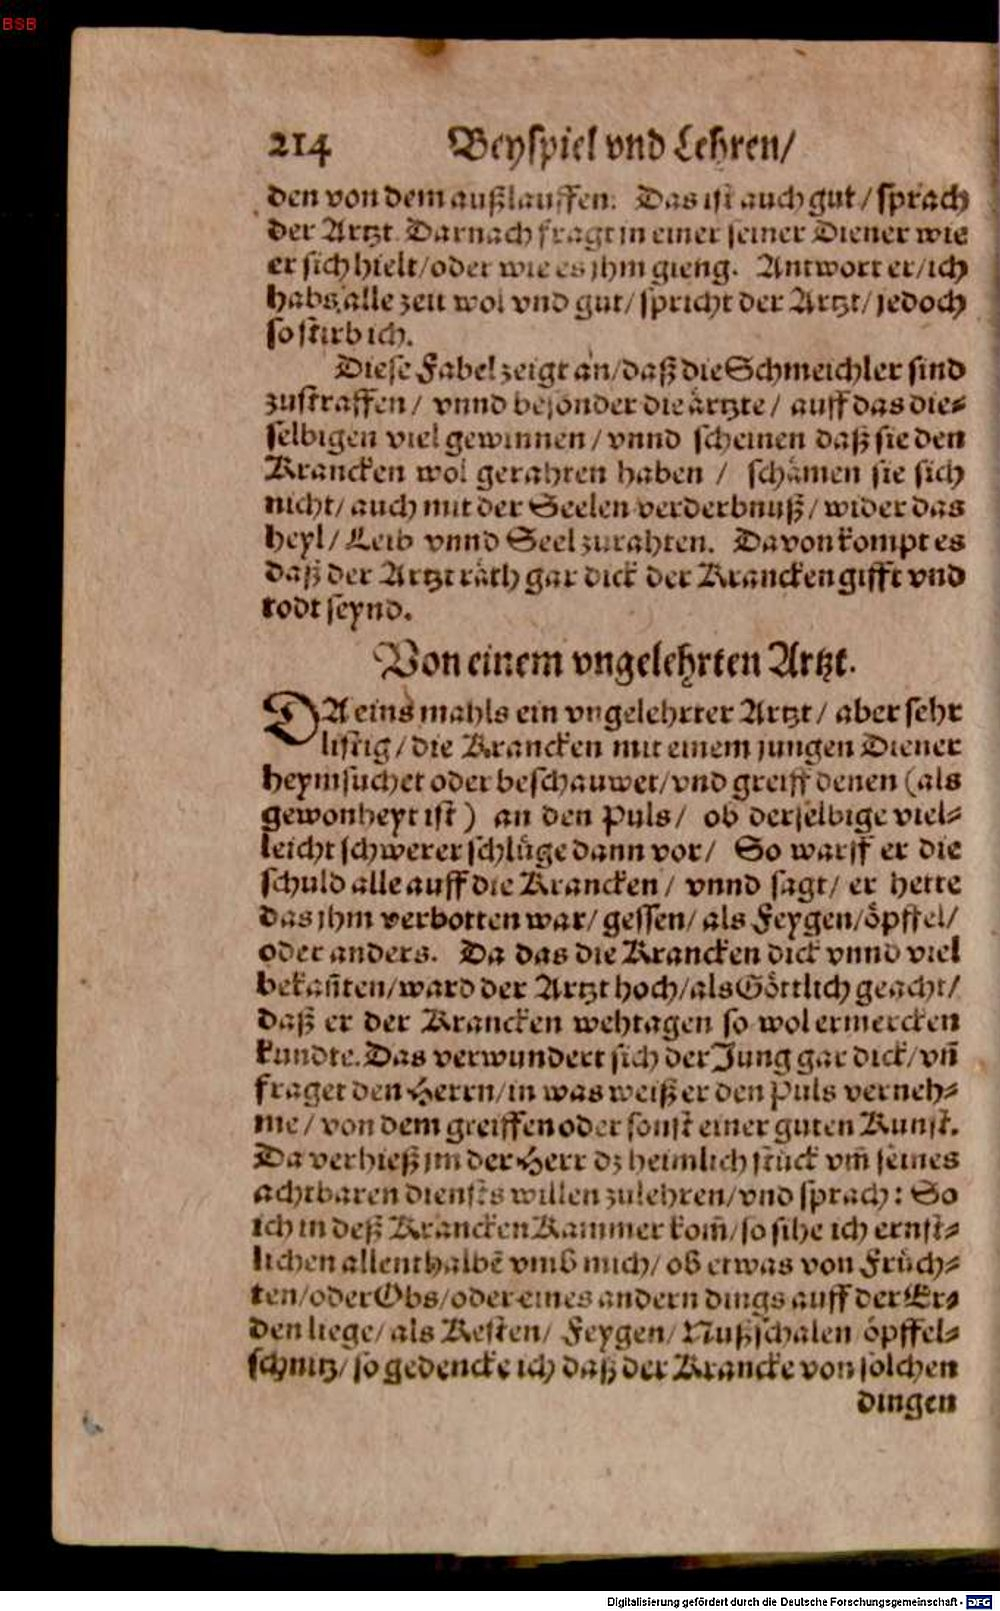 BSB
214 Beyspiel vnd Lehren/
den von dem außlauffen. Das ist auch gut/ sprach
der Artzt. Darnach fragt in einer seiner Diener wie
er sich hielt/ oder wie es jhm gieng. Antwort er/ ich
habs alle zeit wol vnd gut/ spricht der Artzt/ jedoch
so stirb ich.
Diese Fabel zeigt an/ daß die Schmeichler sind
zustraffen/ vnnd besonder die ärtzte/ auff das die⸗
selbigen viel gewinnen/ vnnd scheinen daß sie den
Krancken wol gerahten haben / schämen sie sich
nicht/ auch mit der Seelen verderbnuß/ wider das
heyl/ Leib vnnd Seel zurahten. Davon kompt es
daß der Artzt räth gar dick der Krancken gifft vnd
todt seynd.
Von einem vngelehrten Artzt.
DA eins mahls ein vngelehrter Artzt/ aber sehr
listig/ die Krancken mit einem jungen Diener
heymsuchet oder beschauwet/ vnd greiff denen (als
gewonheyt ist) an den Puls/ ob derselbige viel⸗
leicht schwerer schlüge dann vor/ So warff er die
schuld alle auff die Krancken/ vnnd sagt/ er hette
das jhm verbotten war/ gessen/ als Feygen/ öpffel/
oder anders. Da das die Krancken dick vnnd viel
bekañten/ ward der Artzt hoch/ als Göttlich geacht/
daß er der Krancken wehtagen so wol ermercken
kundte. Das verwundert sich der Jung gar dick/ vñ
fraget den Herrn/ in was weiß er den Puls verneh⸗
me/ von dem greiffen oder sonst einer guten Kunst.
Da verhieß jm der Herr dz heimlich stück vm̃ seines
achtbaren diensts willen zulehren/ vnd sprach: So
ich in deß Krancken Kammer kom̃/ so sihe ich ernst⸗
lichen allenthalbẽ vmb mich/ ob etwas von Früch⸗
ten/ oder Obs/ oder eines andern dings auff der Er⸗
den liege/ als Kesten/ Feygen/ Nußschalen öpffel⸗
schnitz/ so gedencke ich daß der Krancke von solchen
dingen
Digitalisierung gefördert durch die Deutsche Forschungsgemeinschaft - DFG